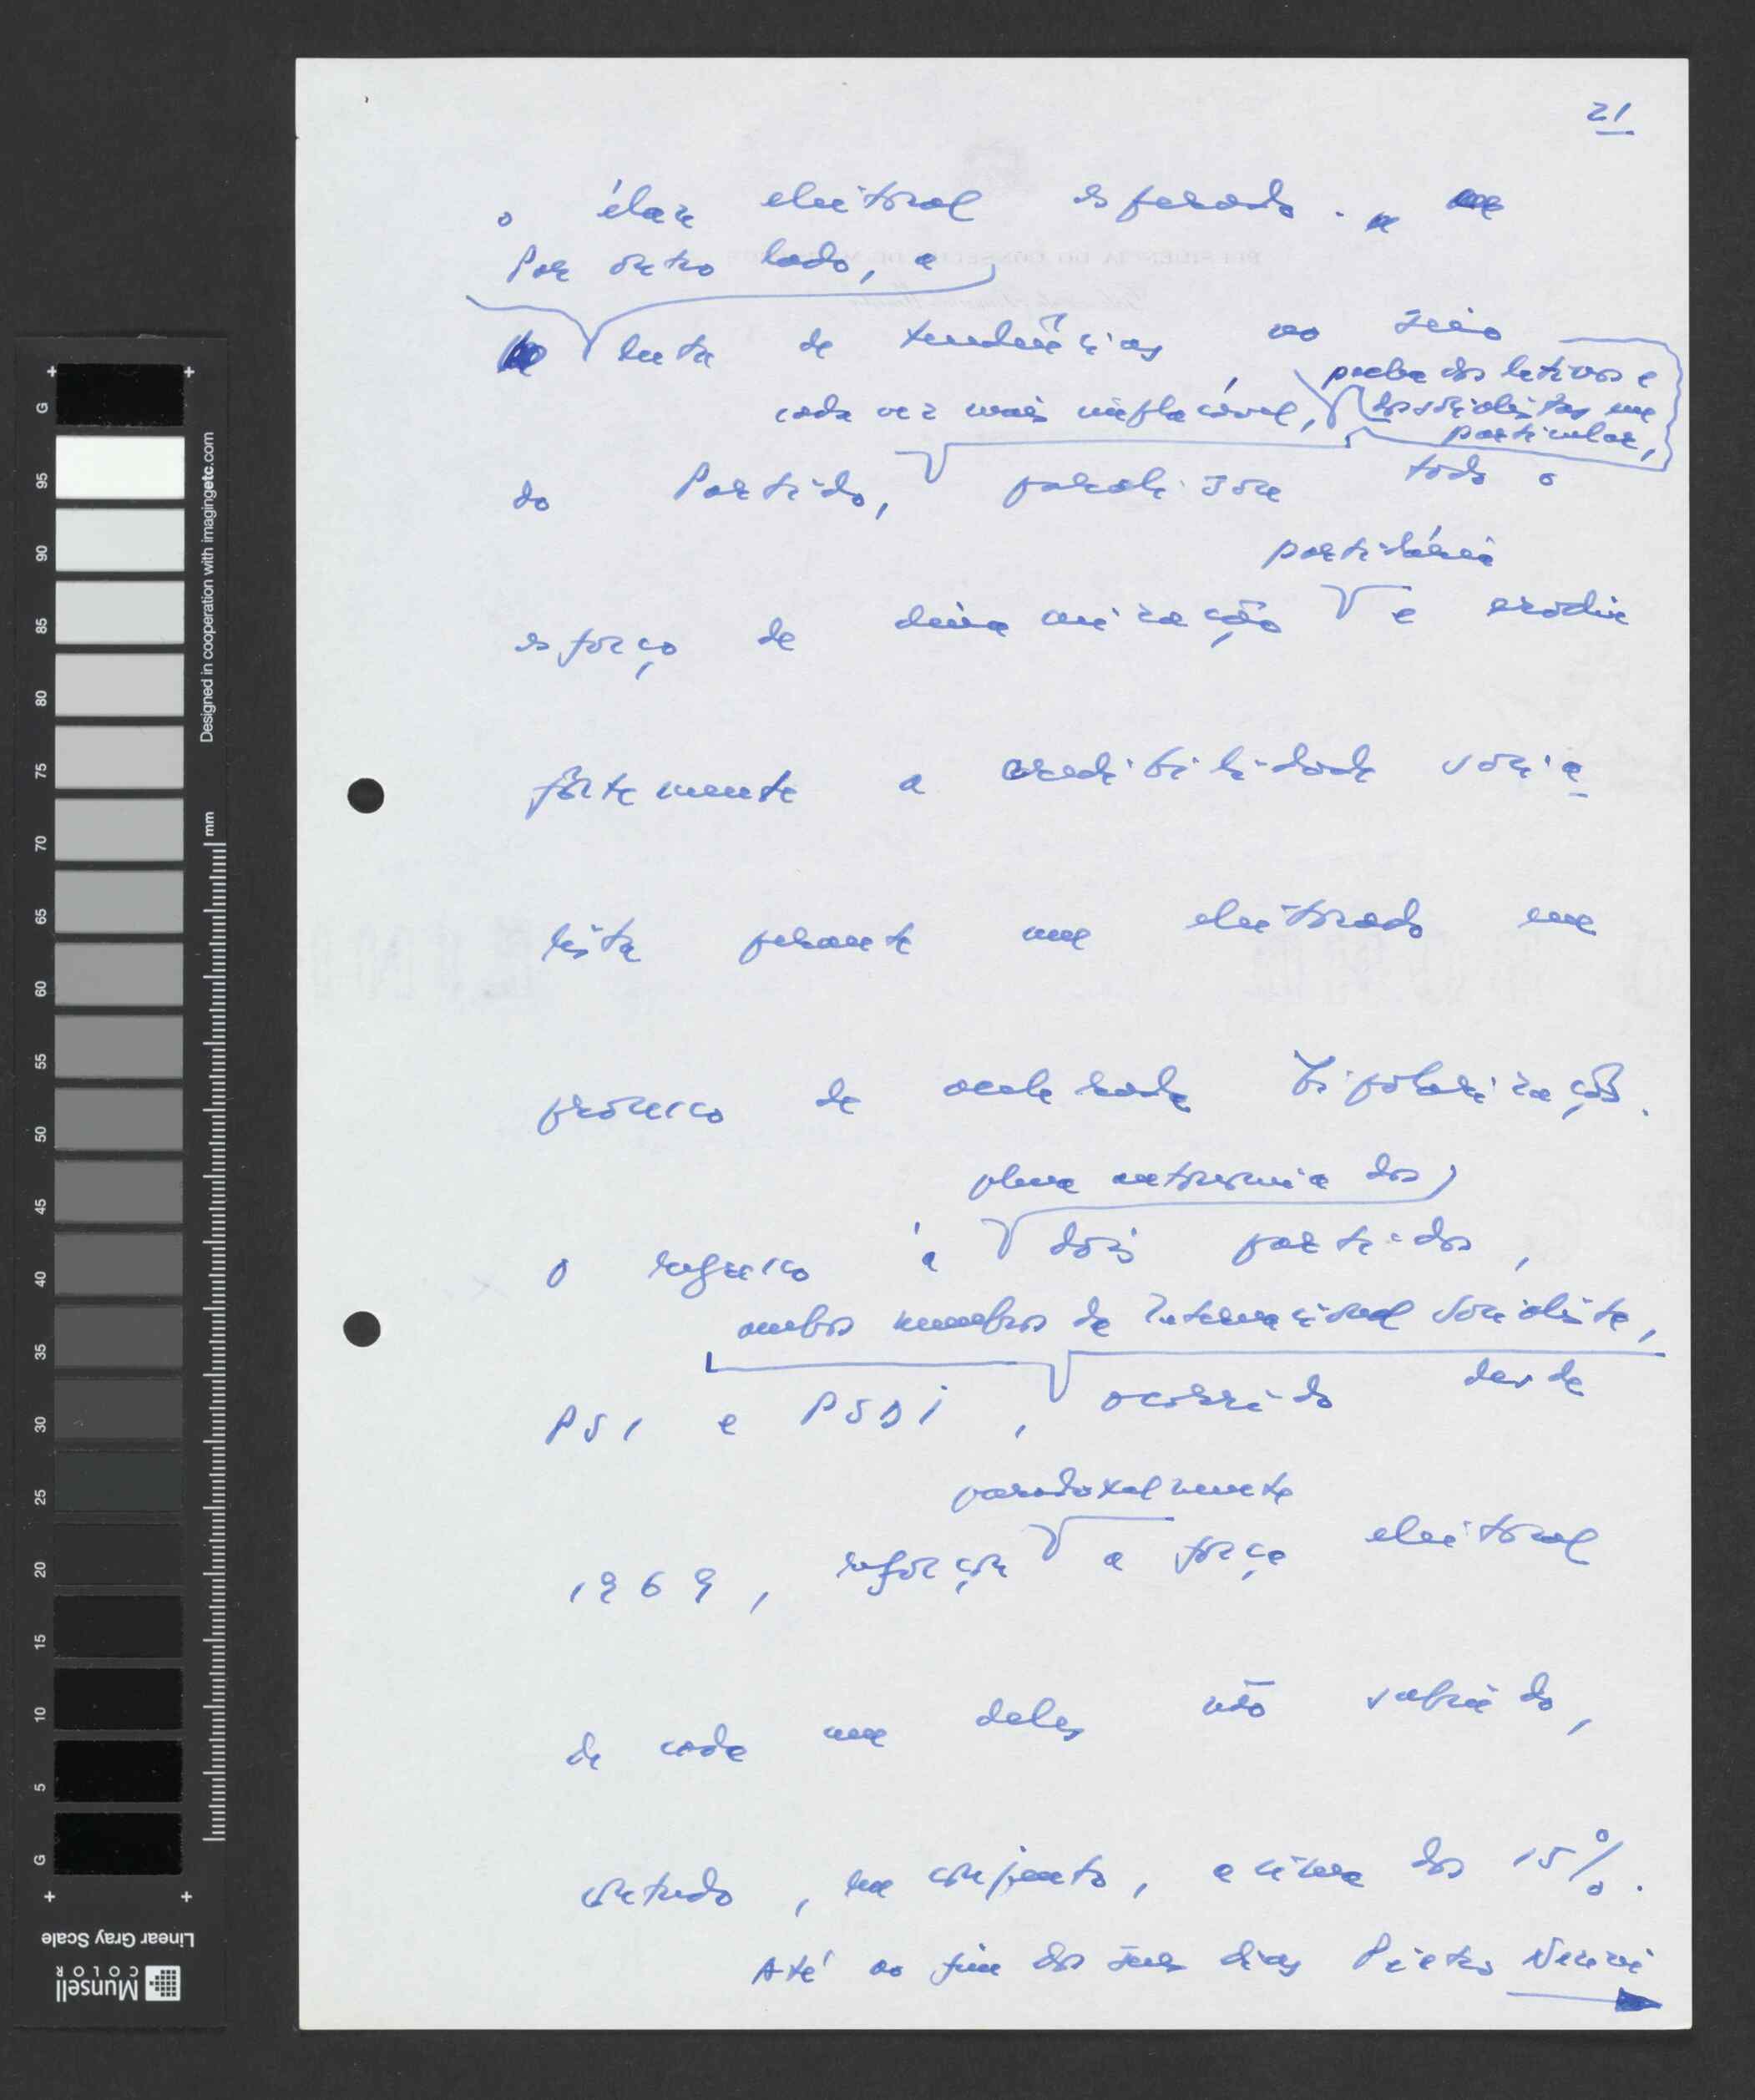 21
o élan eleitoral esperado.
Por outro lado, a
luta de tendências, no seio
cada vez mais implacável,
dos socialistas em
particular,
do Partido, paralisou todo o
partidária
esforço de dinamização e erodiu
fortemente a credibilidade socia
lista perante um eleitorado em
processo de acelerada bipolarização.
plena autonomia dos
O regresso à dois partidos,
ambos membros da Internacional Socialista,
PSI e PSDI, ocorrido desde
paradoxalmente
1969, reforçou a força eleitoral
de cada um deles não subindo,
contudo, em conjunto, acima dos 15%.
Até ao fim dos seus dias Pietro Nenni
Designed in cooperation with imagingetc.com
mm
G 95 90 85 80 75 70 65 60 55 50 45 40 35 30 25 20 15 10 5 G
Linear Gray Scale
Munsell
COLOR